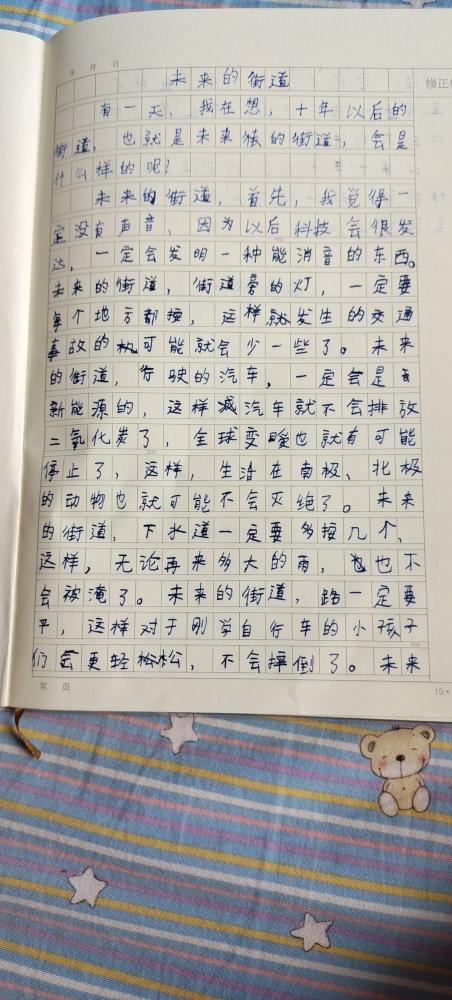 年 月 日
修正
未来的街道
有一天，我在想，十年以后的
街道，也就是未来候的街道，会是
什么样的呢？
未来的街道，首先，我觉得一
定没有声音，因为以后科技会很发
达，一定会发明一种能消音的东西。
未来的街道，街道旁的灯，一定要
每个地方都按，这样就发生的交通
事故的可能就会少一些了。未来
的街道，行驶的汽车，一定会是
新能源的，这样汽车就不会排放
二氧化炭了，全球变暖也就有可能
停止了，这样，生活在南极、北极
的动物也就可能不会灭绝了。未来
的街道，下水道一定要多按几个，
这样，无论再来多大的雨，也不
会被淹了。未来的街道，路一定要
平，这样对于刚学自行车的小孩子
们会更轻松松，不会摔倒了。未来
第 页
15×